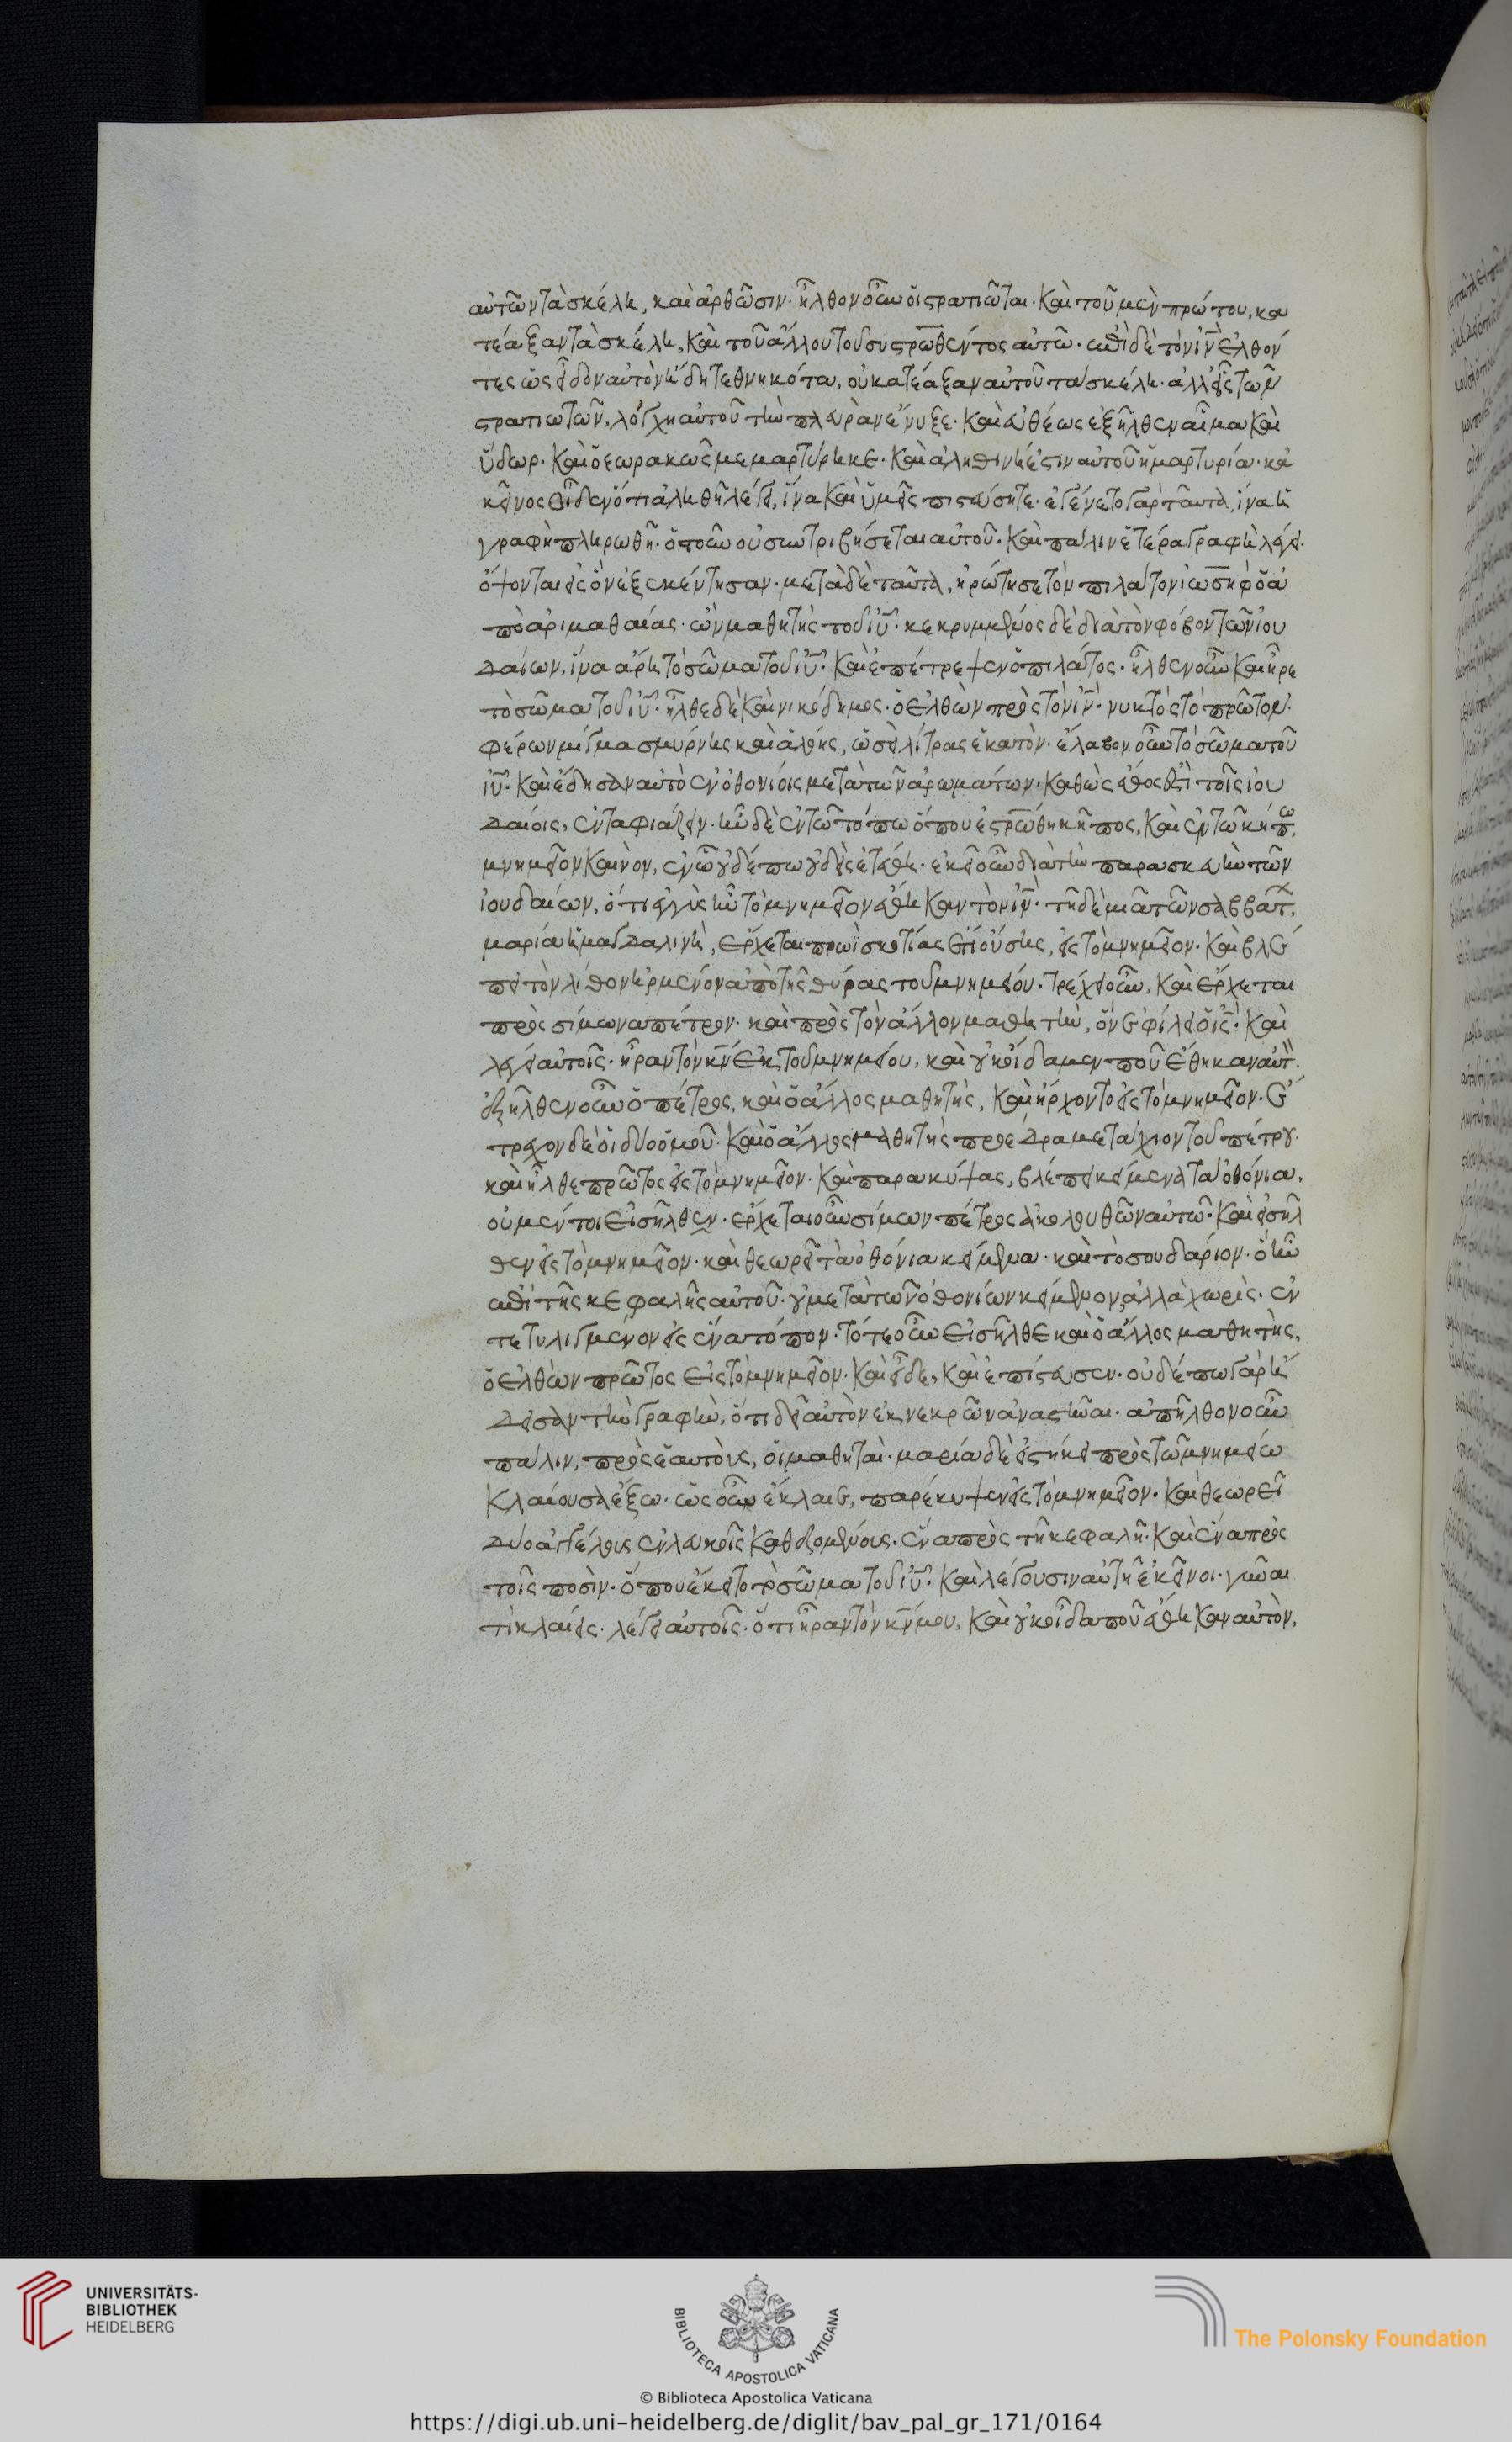 αὐτῶν τὰ σκέλη, καὶ ἀρθῶσιν. ἦλθον οὖν οἱ στρατιῶται. καὶ τοῦ μὲν πρώτου, κα
τέαξαν τὰ σκέλη, καὶ τοῦ ἄλλου τοῦ συστρωθέντος αὐτῶ. ἐπὶ δὲ τὸν ἰν ἐλθόν
τες ὡς εἶδον αὐτὸν ἤδη τεθνηκότα, οὐ κατέαξαν αὐτοῦ τα σκέλη. ἀλλ εἷς τῶν
στρατιωτῶν, λόγχη αὐτοῦ τὴν πλευρὰν ἔνυξε. καὶ εὐθέως ἐξῆλθεν αἷμα καὶ
ὕδωρ. καὶ ὁ ἑωρακὼς μεμαρτύρηκε. καὶ ἀληθινή ἐστιν αὐτοῦ ἡ μαρτυρία. κα
κεῖνος οἶδεν ὅτι ἀληθῆ λέγει, ἵνα καὶ ὑμεῖς πιστεύσητε. ἐγένετο γὰρ ταῦτα, ἵνα ἡ
γραφὴ πληρωθῆ. ὀστοῦν οὐ συντριβήσεται αὐτοῦ. καὶ πάλιν ἑτέρα γραφὴ λέγει.
ὄψονται εἰς ὃν ἐξεκέντησαν. μετὰ δὲ ταῦτα, ἠρώτησε τὸν πιλάτον ἰωσὴφ ὁ ἀ
πὸ ἀριμαθαίας. ὢν μαθητὴς τοῦ ἰυ. κεκρυμμένος δὲ διὰ τὸν φόβον τῶν ἰου
δαίων, ἵνα ἄρη τὸ σῶμα τοῦ ἰυ. καὶ ἐπέτρεψεν ὁ πιλάτος. ἦλθεν οὖν καὶ ἦρε
τὸ σῶμα τοῦ ἰυ. ἦλθε δὲ καὶ νικόδημος. ὁ ἐλθὼν πρὸς τὸν ἰν. νυκτὸς τὸ πρῶτον.
φέρων μίγμα σμύρνης καὶ ἀλόης, ὡσεὶ λίτρας ἑκατὸν. ἔλαβον οὖν τὸ σῶμα τοῦ
ἰυ. καὶ ἔδησαν αὐτὸ ἐν ὀθονίοις μετὰ τῶν ἀρωμάτων. καθὼς ἔθος ἐστὶ τοῖς ἰου
δαίοις, ἐνταφιάζειν. ἦν δὲ ἐν τῶ τόπω ὅπου ἐστρώθη κῆπος, καὶ ἐν τῶ κήπω,
μνημεῖον καινὸν, ἐν ὧ οὐδέπω οὐδεὶς ἐτέθη. ἐκεῖ οὖν διὰ τὴν παρασκευὴν τῶν
ἰουδαίων, ὅτι ἐγγὺς ἦν τὸ μνημεῖον ἔθηκαν τὸν ἰν. τῆ δὲ μιᾶ τῶν σαββάτ,
μαρία ἡ μαγδαλινὴ, ἔρχεται πρωῒ σκοτίας ἔτι οὔσης, εἰς τὸ μνημεῖον. καὶ βλέ
πει τὸν λίθον ἠρμένον ἀπὸ τῆς θύρας τοῦ μνημείου. τρέχει οὖν, καὶ ἔρχεται
πρὸς σίμωνα πέτρον. καὶ πρὸς τὸν ἄλλον μαθητὴν, ὃν ἐφίλει ὁ ἰς. καὶ
λέγει αὐτοῖς. ἦραν τὸν κν ἐκ τοῦ μνημείου, καὶ οὐκ οἴδαμεν ποῦ ἔθηκαν αὐτ.
ἐξῆλθεν οὖν ὁ πέτρος, καὶ ὁ ἄλλος μαθητὴς, καὶ ἤρχοντο εἰς τὸ μνημεῖον. ἔ
τρεχον δὲ οἱ δύο ὁμοῦ. καὶ ὁ ἄλλος μαθητὴς προέδραμε τάχιον τοῦ πέτρου.
καὶ ἦλθε πρῶτος εἰς τὸ μνημεῖον. καὶ παρακύψας, βλέπει κείμενα τὰ ὀθόνια.
οὐ μέντοι εἰσῆλθεν. ἔρχεται οὖν σίμων πέτρος ἀκολουθῶν αὐτῶ. καὶ εἰσῆλ
θεν εἰς τὸ μνημεῖον. καὶ θεωρεῖ τὰ ὀθόνια κείμενα. καὶ τὸ σουδάριον. ὃ ἦν
ἐπὶ τῆς κεφαλῆς αὐτοῦ. οὐ μετὰ τῶν ὀθονίων κείμενον, ἀλλὰ χωρὶς. ἐν
τετυλιγμένον εἰς ἕνα τόπον. τότε οὖν εἰσῆλθε καὶ ὁ ἄλλος μαθητὴς,
ὁ ἐλθὼν πρῶτος εἰς τὸ μνημεῖον. καὶ εἶδε, καὶ ἐπίστευσεν. οὐδέπω γὰρ ἤ
δεισαν τὴν γραφὴν, ὅτι δεῖ αὐτὸν ἐκ νεκρῶν ἀναστῆναι. ἀπῆλθον οὖν
πάλιν, πρὸς ἑαυτοὺς, οἱ μαθηταὶ. μαρία δὲ εἱστήκει πρὸς τῶ μνημείω
κλαίουσα ἔξω. ὡς οὖν ἔκλαιε, παρέκυψεν εἰς τὸ μνημεῖον. καὶ θεωρεῖ
δύο ἀγγέλους ἐν λευκοῖς καθεζομένους. ἕνα πρὸς τῆ κεφαλῆ. καὶ ἕνα πρὸς
τοῖς ποσὶν. ὅπου ἔκειτο τὸ σῶμα τοῦ ἰυ. καὶ λέγουσιν αὐτῆ ἐκεῖνοι. γύναι
τί κλαίεις. λέγει αὐτοῖς. ὅτι ἦραν τὸν κν μου, καὶ οὐκ οἶδα ποῦ ἔθηκαν αὐτὸν.
UNIVERSITÄTS-
BIBLIOTHEK
HEIDELBERG
BIBLIOTECA APOSTOLICA VATICANA
The Polonsky Foundation
© Biblioteca Apostolica Vaticana
https://digi.ub.uni-heidelberg.de/diglit/bav_pal_gr_171/0164